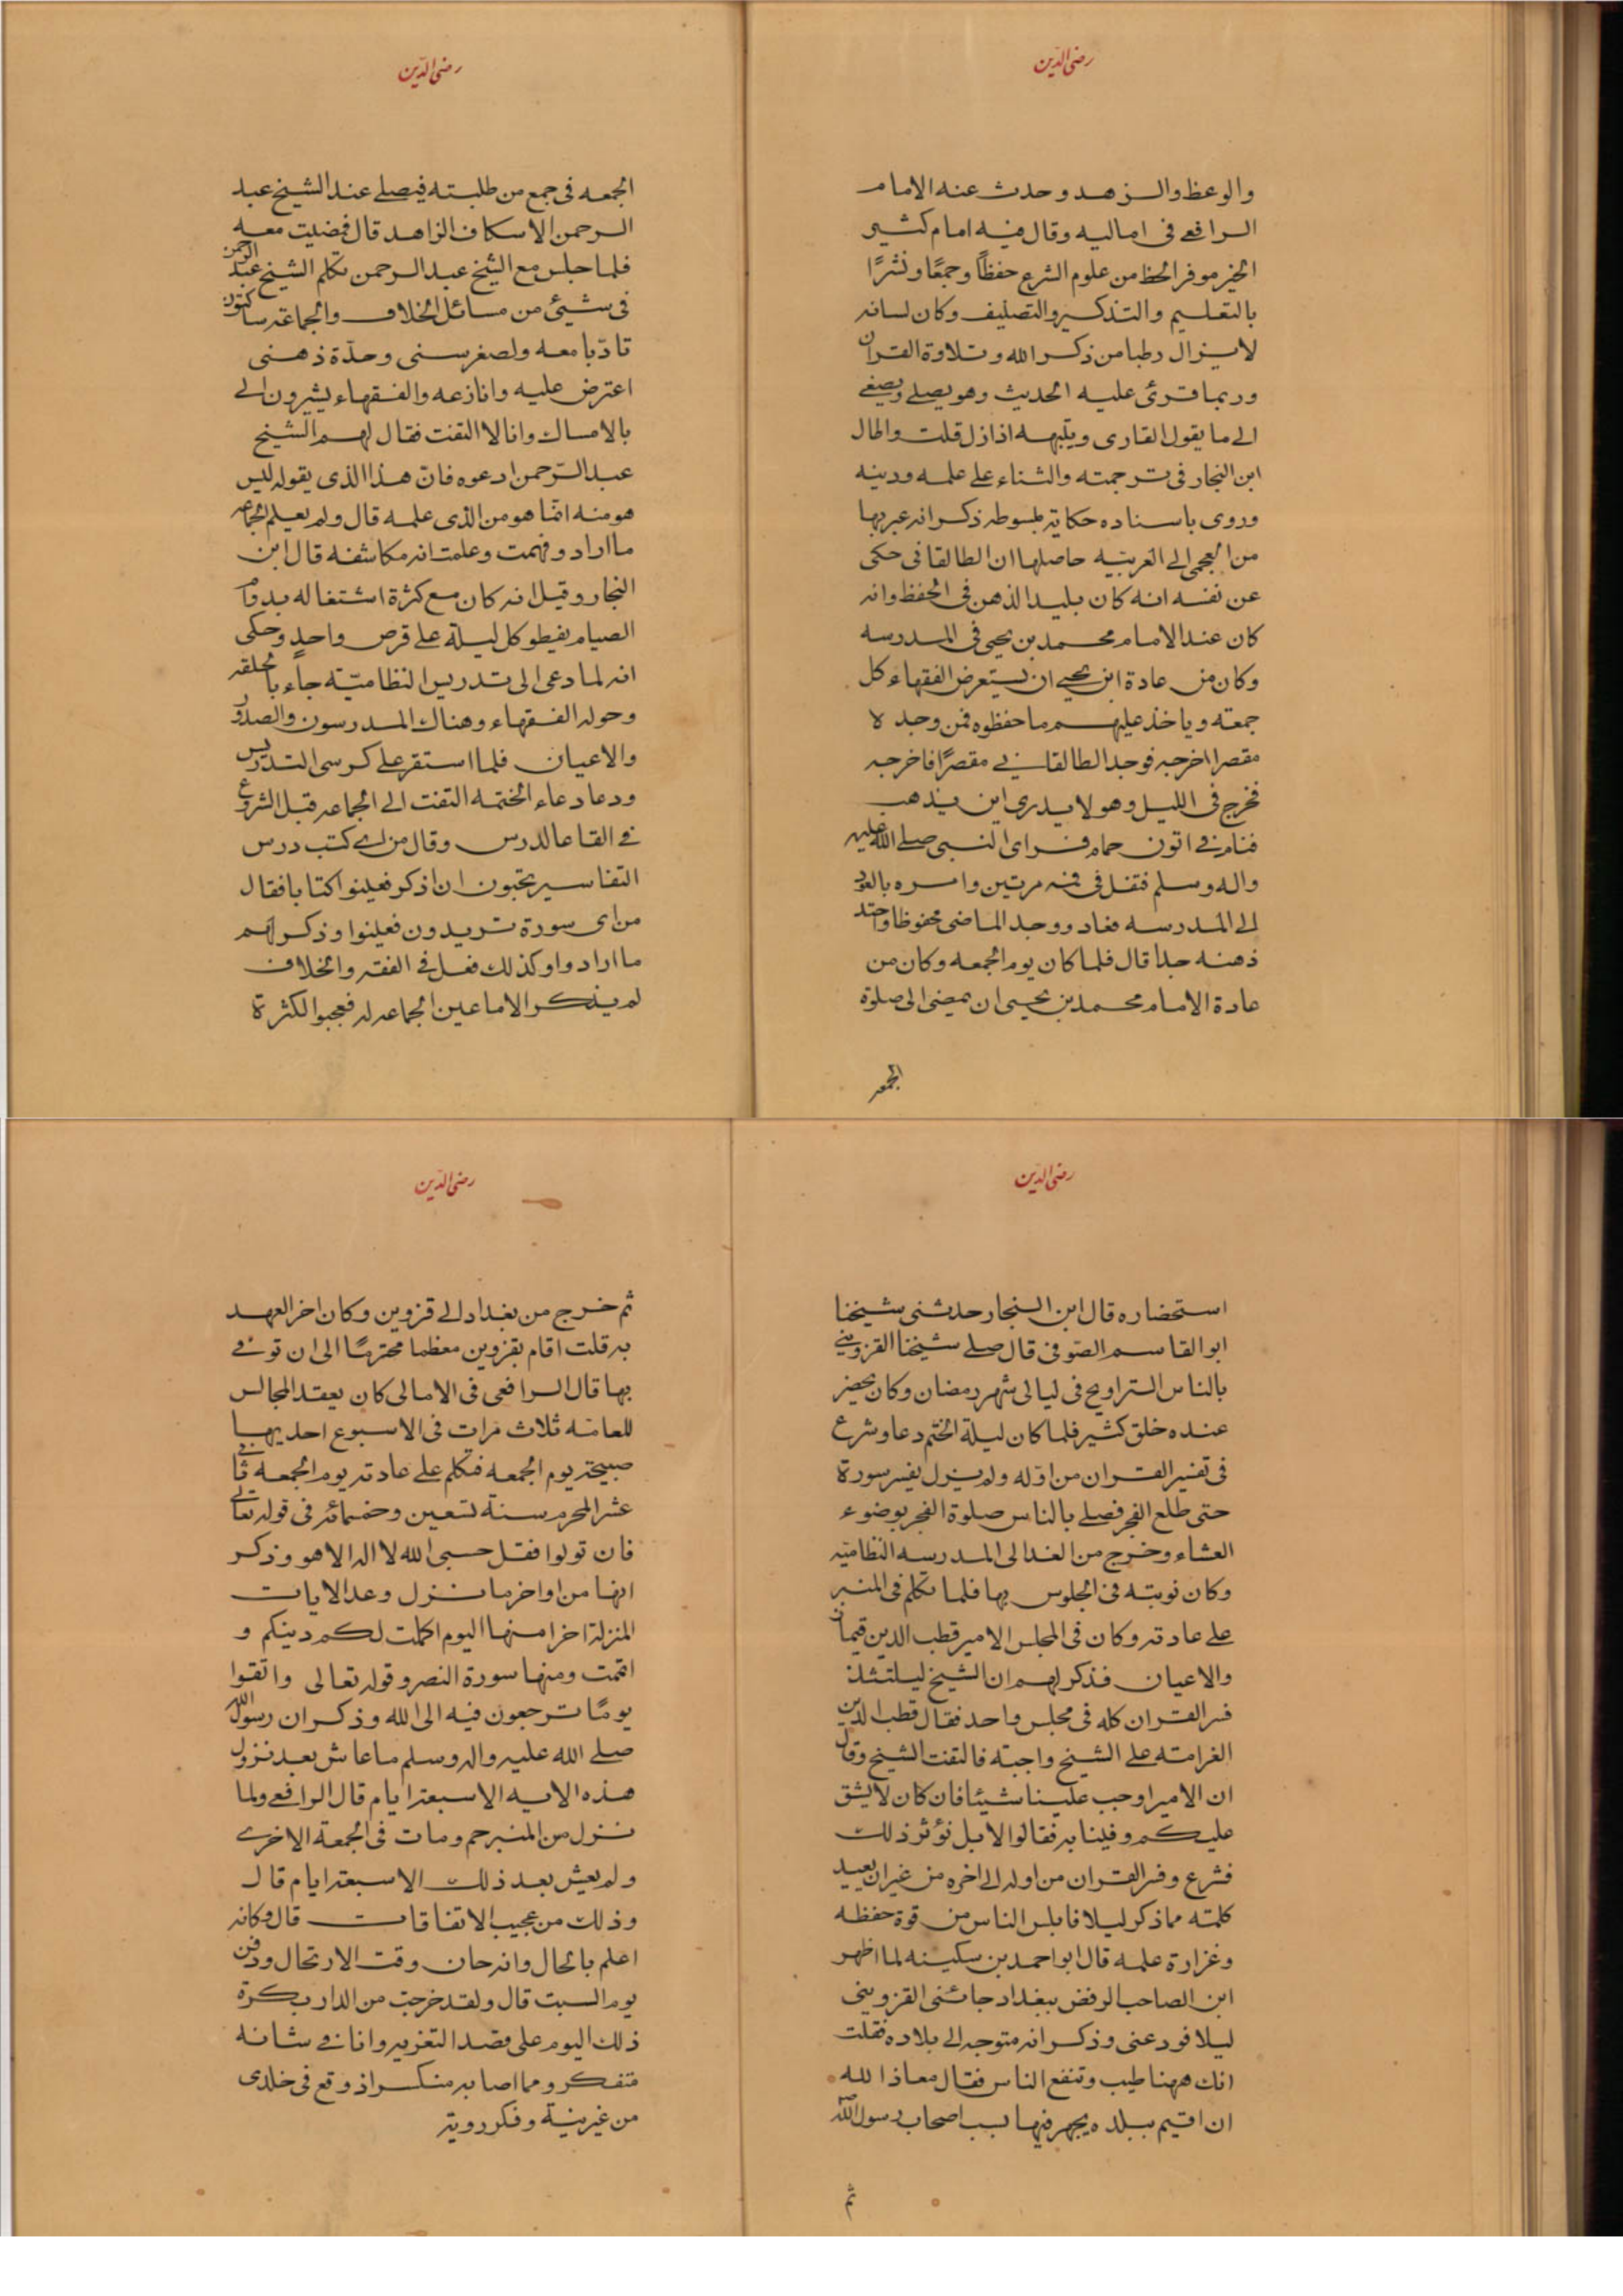 رضى الدّين
والوعظ والزهد وحدث عنه الامام
الرافعى فى اماليه وقال فيه امام كثير
الخير موفر الحظ من علوم الشرع حفظاً وجمعًا ونشرًا
بالتعليم والتذكير والتصنيف وكان لسانه
لا يزال رطبا من ذكر الله وتلاوة القرآن
وربما قرئ عليه الحديث وهو يصلى ويصغى
الى ما يقول القارى وينبهه اذا زل قلت واطال
ابن النجار فى ترجمته والثناء على علمه ودينه
وروى باسناده حكاية مبسوطه ذكر انه عبر بها
من العجمى الى العربيه حاصلها ان الطالقانى حكى
عن نفسه انه كان بليد الذهن فى الحفظ وانه
كان عند الامام محمد بن يحيى فى المدرسه
وكان من عادة ابن يحيى ان يستعرض الفقهاء كل
جمعته وياخذ عليهم ما حفظوه فمن وجد لا
مقصرا اخرجه فوجد الطالقانى مقصرًا فاخرجه
فخرج فى الليل وهو لا يدرى اين يذهب
فنام فى اتون حمام فراى النبى صلى الله عليه
واله وسلم فتفل فى فمه مرتين وامره بالعود
الى المدرسه فعاد ووجد الماضى محفوظا واحتد
ذهنه جدا قال فلما كان يوم الجمعه وكان من
عادة الامام محمد بن يحيى ان يمضى الى صلوة
الجمعه
رضى الدّين
الجمعه فى جمع من طلبته فيصلى عند الشيخ عبد
الرحمن الاسكاف الزاهد قال فمضيت معه
فلما جلس مع الشيخ عبد الرحمن تكلم الشيخ عبد الرحمن
فى شيئ من مسائل الخلاف والجماعة ساكتون
تادّبا معه ولصغر سنى وحدّة ذهنى
اعترض عليه وانازعه والفقهاء يشيرون الى
بالامساك وانا لا التفت فقال لهم الشيخ
عبد الرحمن ادعوه فان هذا الذى يقوله ليس
هو منه انّما هو من الذى علمه قال ولم يعلم الجماعه
ما اراد وفهمت وعلمت انه مكاشفه قال ابن
النجار وقيل انه كان مع كثرة اشتغاله يدوم
الصيام يفطر كل ليلة على قرص واحدٍ وحكى
انه لما دعى الى تدريس النظاميّة جاء بالحلقه
وحوله الفقهاء وهناك المدرسون والصدور
والاعيان فلما استقر على كرسى التدريس
ودعا دعاء الختمه التفت الى الجماعه قبل الشروع
فى القاء الدرس وقال من اى كتب درس
التفاسير تحبون ان اذكر فعينوا كتابا فقال
من اى سورة تريدون فعينوا وذكر لهم
ما ارادوا وكذلك فعل فى الفقه والخلاف
لم يذكر الا ما عين الجماعه له فعجبوا لكثرة
رضى الدّين
استحضاره قال ابن النجار حدثنى شيخنا
ابو القاسم الصّوفى قال صلى شيخنا القزوينى
بالناس التراويح فى ليالى شهر رمضان وكان يحضر
عنده خلق كثير فلما كان ليلة الختم دعا وشرع
فى تفسير القران من اوّله ولم يزل يفسر سورة
حتى طلع الفجر فصلى بالناس صلوة الفجر بوضوء
العشاء وخرج من الغد الى المدرسه النظاميّه
وكان نوبته فى الجلوس بها فلما تكلم فى المنبر
على عادته وكان فى المجلس الامير قطب الدين قيماز
والاعيان فذكر لهم ان الشيخ ليلتئذ
فسر القران كله فى مجلس واحد فقال قطب الدين
الغرامته على الشيخ واجبته فالتفت الشيخ وقال
ان الامير اوجب علينا شيئا فان كان لا يشق
عليكم وفينا به فقالوا لا بل نؤثر ذلك
فشرع وفسر القران من اوله الى اخره من غير ان يعيد
كلمته مما ذكر ليلا فابلس الناس من قوة حفظه
وغزارة علمه قال ابو احمد بن سكينه لما اظهر
ابن الصاحب الرفض ببغداد جائنى القزوينى
ليلا فودعنى وذكر انه متوجه الى بلاده فقلت
انك ههنا طيب وتنفع الناس فقال معاذ الله
ان اقيم ببلده يجهر فيها بسب اصحاب رسول الله
ثم
رضى الدّين
ثم خرج من بغداد الى قزوين وكان اخر العهد
به قلت اقام بقزوين معظما محترمًا الى ان توفى
بها قال الرافعى فى الامالى كان يعقد المجالس
للعامّه ثلاث مرات فى الاسبوع احديها
صبيحة يوم الجمعه فتكلم على عادته يوم الجمعه ثانى
عشر المحرم سنة تسعين وخمسمائه فى قوله تعالى
فان تولوا فقل حسبى الله لا اله الا هو وذكر
انها من اواخر ما نزل وعد الايات
المنزلة اخرا منها اليوم اكملت لكم دينكم و
اتممت ومنها سورة النصر وقوله تعالى واتقوا
يومًا ترجعون فيه الى الله وذكر ان رسول الله
صلى الله عليه واله وسلم ما عاش بعد نزول
هذه الايه الا سبعة ايام قال الرافعى ولما
نزل من المنبر حم ومات فى الجمعة الاخرى
ولم يعش بعد ذلك الا سبعة ايام قال
وذلك من عجيب الاتفاقات قال وكانه
اعلم بالحال وانه حان وقت الارتحال ودفن
يوم السبت قال ولقد خرجت من الدار بكرة
ذلك اليوم على قصد التعزيه وانا فى شانه
متفكر ومما اصابه منكسر اذ وقع فى خلدى
من غير نيّة وفكر روية